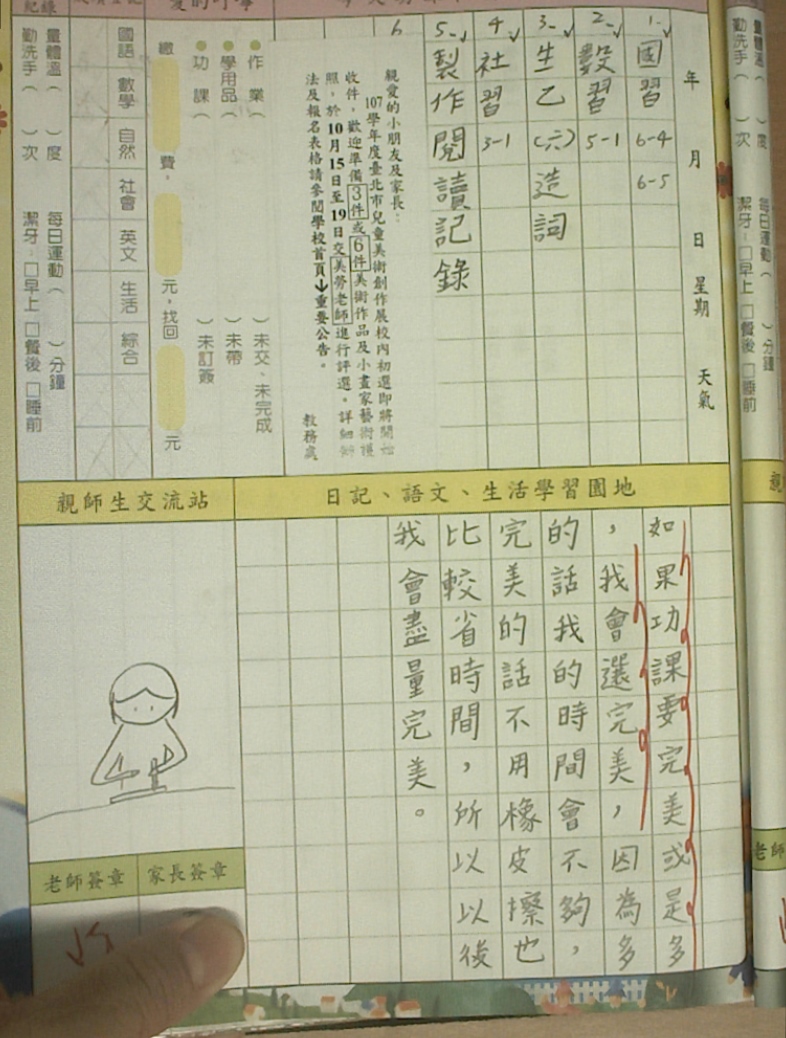 年 月 日 星期 天氣
1. 國習 6-4 6-5
2. 數習 5-1
3. 生乙(六)造詞
4. 社習 3-1
5. 製作閱讀記錄
6
親愛的小朋友及家長：
107學年度臺北市兒童美術創作展校內初選即將開始
收件，歡迎準備3件或6件美術作品及小畫家藝術護
照，於10月15日至19日交美勞老師進行評選。詳細辦
法及報名表格請參閱學校首頁↓重要公告。
教務處
作業（ ）未交、未完成
學用品（ ）未帶
功課（ ）未訂簽
繳 費， 元，找回 元
國語 數學 自然 社會 英文 生活 綜合
量體溫（ ）度 每日運動（ ）分鐘
勤洗手（ ）次 潔牙：□早上 □餐後 □睡前
日記、語文、生活學習園地
如果功課要完美或是多
，我會選完美，因為多
的話我的時間會不夠，
完美的話不用橡皮擦也
比較省時間，所以以後
我會盡量完美。
親師生交流站
家長簽章
老師簽章
度 每日運動（ ）分鐘
勤洗手（ ）次 潔牙：□早上 □餐後 □睡前
親
老師